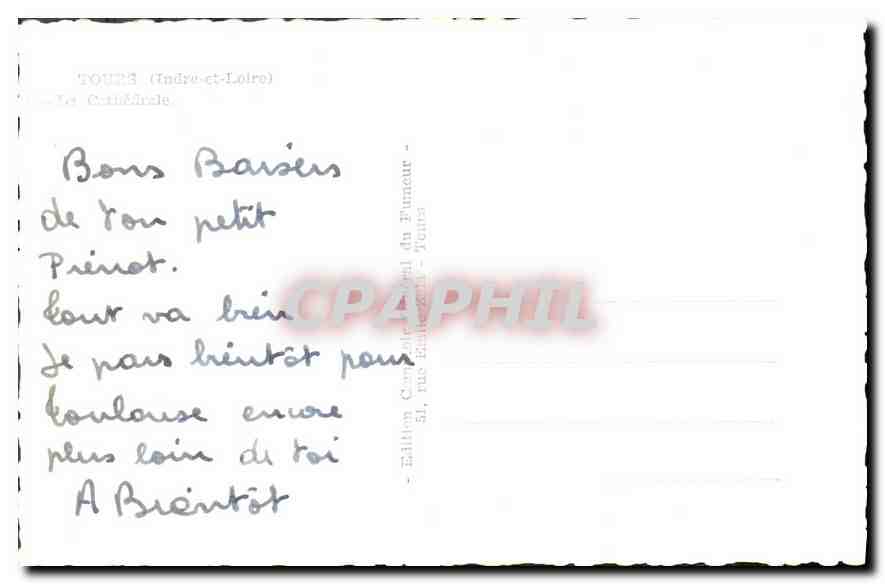 TOURS (Indre-et-Loire)
La Cathédrale
Bons Baisers
de ton petit
Piérrot.
tout va bien
Je pars bientôt pour
toulouse encore
plus loin de toi
A Bientôt
- Edition Comptoir Général du Fumeur -
51, rue - Tours
CPAPHIL